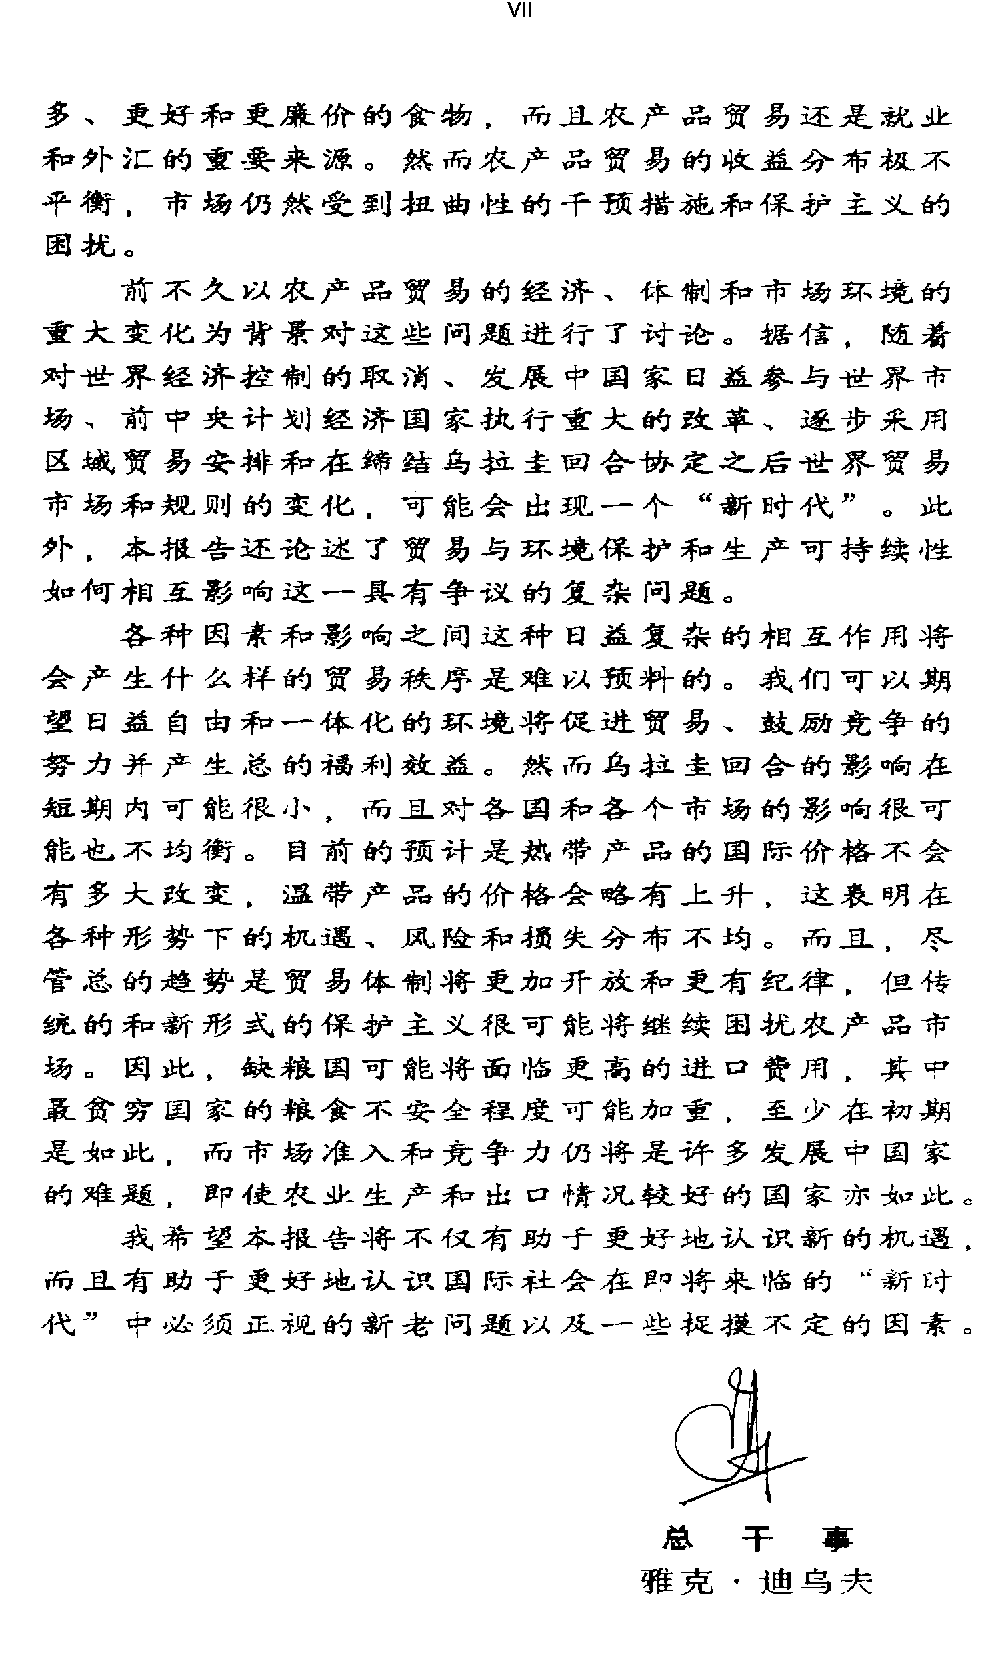 VII
多、更好和更廉价的食物，而且农产品贸易还是就业
和外汇的重要来源。然而农产品贸易的收益分布极不
平衡，市场仍然受到扭曲性的干预措施和保护主义的
困扰。
前不久以农产品贸易的经济、体制和市场环境的
重大变化为背景对这些问题进行了讨论。据信，随着
对世界经济控制的取消、发展中国家日益参与世界市
场、前中央计划经济国家执行重大的改革、逐步采用
区域贸易安排和在缔结乌拉圭回合协定之后世界贸易
市场和规则的变化，可能会出现一个“新时代”。此
外，本报告还论述了贸易与环境保护和生产可持续性
如何相互影响这一具有争议的复杂问题。
各种因素和影响之间这种日益复杂的相互作用将
会产生什么样的贸易秩序是难以预料的。我们可以期
望日益自由和一体化的环境将促进贸易、鼓励竞争的
努力并产生总的福利效益。然而乌拉圭回合的影响在
短期内可能很小，而且对各国和各个市场的影响很可
能也不均衡。目前的预计是热带产品的国际价格不会
有多大改变，温带产品的价格会略有上升，这表明在
各种形势下的机遇、风险和损失分布不均。而且，尽
管总的趋势是贸易体制将更加开放和更有纪律，但传
统的和新形式的保护主义很可能将继续困扰农产品市
场。因此，缺粮国可能将面临更高的进口费用，其中
最贫穷国家的粮食不安全程度可能加重，至少在初期
是如此，而市场准入和竞争力仍将是许多发展中国家
的难题，即使农业生产和出口情况较好的国家亦如此。
我希望本报告将不仅有助于更好地认识新的机遇，
而且有助于更好地认识国际社会在即将来临的“新时
代”中必须正视的新老问题以及一些捉摸不定的因素。
总 干 事
雅克·迪乌夫